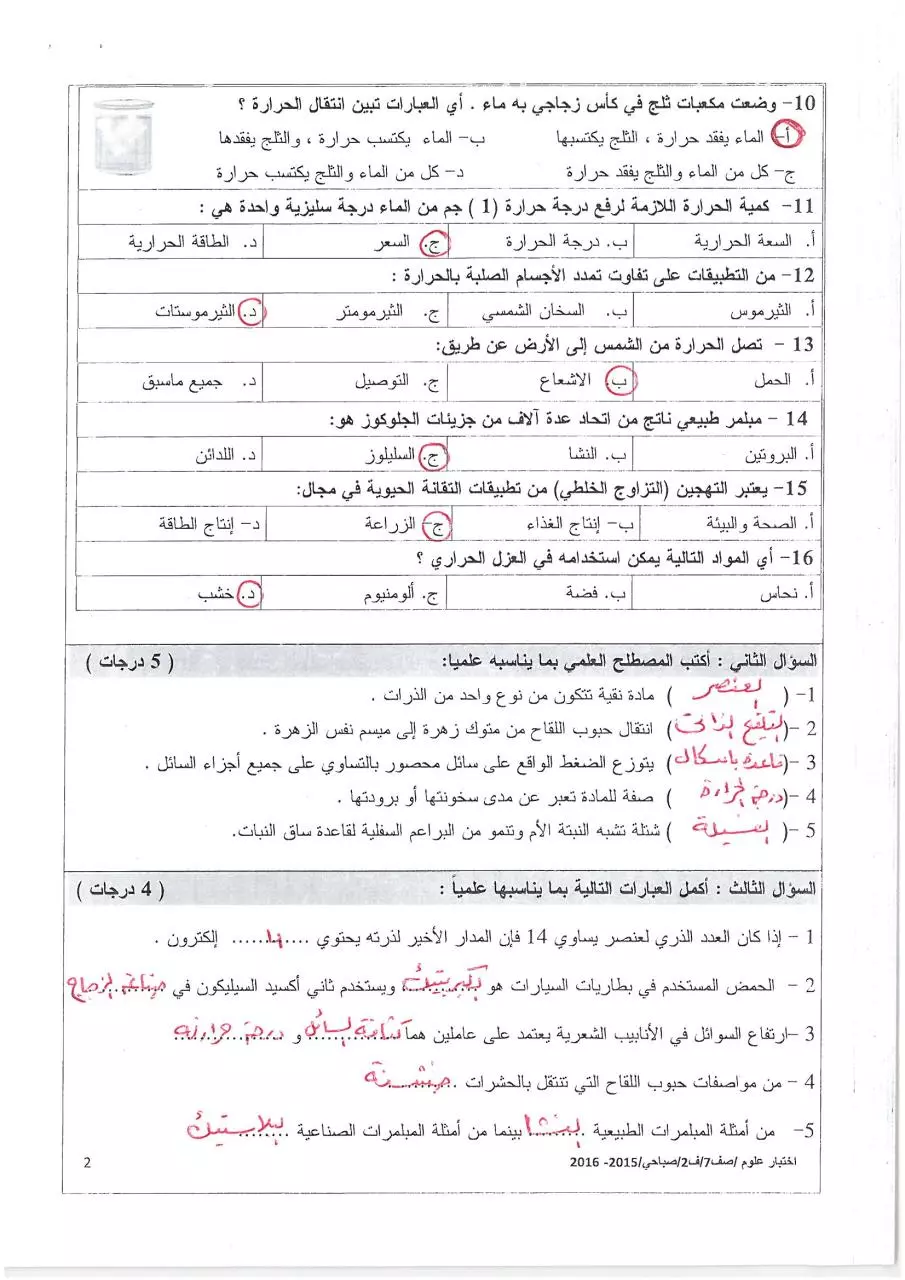 10- وضعت مكعبات ثلج في كأس زجاجي به ماء . أي العبارات تبين انتقال الحرارة ؟
أ- الماء يفقد حرارة ، الثلج يكتسبها ب- الماء يكتسب حرارة ، والثلج يفقدها
ج- كل من الماء والثلج يفقد حرارة د- كل من الماء والثلج يكتسب حرارة
11- كمية الحرارة اللازمة لرفع درجة حرارة ( 1 ) جم من الماء درجة سليزية واحدة هي :
أ. السعة الحرارية ب. درجة الحرارة ج. السعر د. الطاقة الحرارية
12- من التطبيقات على تفاوت تمدد الأجسام الصلبة بالحرارة :
أ. الثيرموس ب. السخان الشمسي ج. الثيرمومتر د. الثيرموستات
13 - تصل الحرارة من الشمس إلى الأرض عن طريق:
أ. الحمل ب. الاشعاع ج. التوصيل د. جميع ماسبق
14 - مبلمر طبيعي ناتج من اتحاد عدة آلاف من جزيئات الجلوكوز هو:
أ. البروتين ب. النشا ج. السليلوز د. اللدائن
15- يعتبر التهجين (التزاوج الخلطي) من تطبيقات التقانة الحيوية في مجال:
أ. الصحة والبيئة ب- إنتاج الغذاء ج- الزراعة د- إنتاج الطاقة
16- أي المواد التالية يمكن استخدامه في العزل الحراري ؟
أ. نحاس ب. فضة ج. ألومنيوم د. خشب
السؤال الثاني : أكتب المصطلح العلمي بما يناسبه علميا: ( 5 درجات )
1- ( العنصر ) مادة نقية تتكون من نوع واحد من الذرات .
2 -( التلقيح الذاتي ) انتقال حبوب اللقاح من متوك زهرة إلى ميسم نفس الزهرة .
3 -( قاعدة باسكال ) يتوزع الضغط الواقع على سائل محصور بالتساوي على جميع أجزاء السائل .
4 -( درجة الحرارة ) صفة للمادة تعبر عن مدى سخونتها أو برودتها .
5 -( الفسيلة ) شتلة تشبه النبتة الأم وتنمو من البراعم السفلية لقاعدة ساق النبات.
السؤال الثالث : أكمل العبارات التالية بما يناسبها علمياً : ( 4 درجات )
1 - إذا كان العدد الذري لعنصر يساوي 14 فإن المدار الأخير لذرته يحتوي ........ إلكترون .
2 - الحمض المستخدم في بطاريات السيارات هو الكبريتيك ويستخدم ثاني أكسيد السيليكون في صناعة الزجاج
3 -ارتفاع السوائل في الأنابيب الشعرية يعتمد على عاملين هما كثافة السائل و درجة حرارته
4 - من مواصفات حبوب اللقاح التي تنتقل بالحشرات . خشنة
5- من أمثلة المبلمرات الطبيعية النشا بينما من أمثلة المبلمرات الصناعية البلاستيك
اختبار علوم /صف7/ف2/صباحي/2015- 2016 2